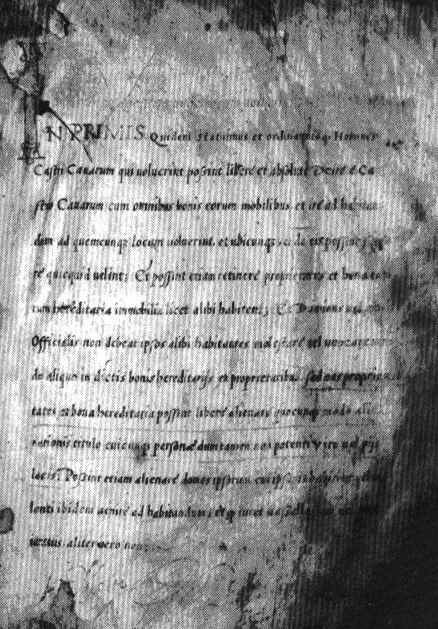 IN PRIMIS Quidem statuimus et ordinamus q Homines
Castri Cauarum qui uoluerint possint libere et absolute Exire de Ca
stro Cauarum cum omnibus bonis eorum mobilibus et ire ad habitan
dum ad quemcunq locum uoluerint, et ubicunq
re quicquid uelint; Et possint etiam retinere proprietates et bona
hereditaria immobilia licet alibi habitent; Et
Officialis non debeat ipsos alibi habitantes molestare uel
de aliquo in dictis bonis hereditarijs et proprietatibus sed eas proprie
tates et bona hereditaria possint libere alienare quocunq modo alie
nationis titulo cuicunq personae dumtamen non potenti uiro uel pijs
locis; Possint etiam alienare domos ipsorum
lenti ibidem uenire ad habitandum; et q iuret
uersus. aliter uero non